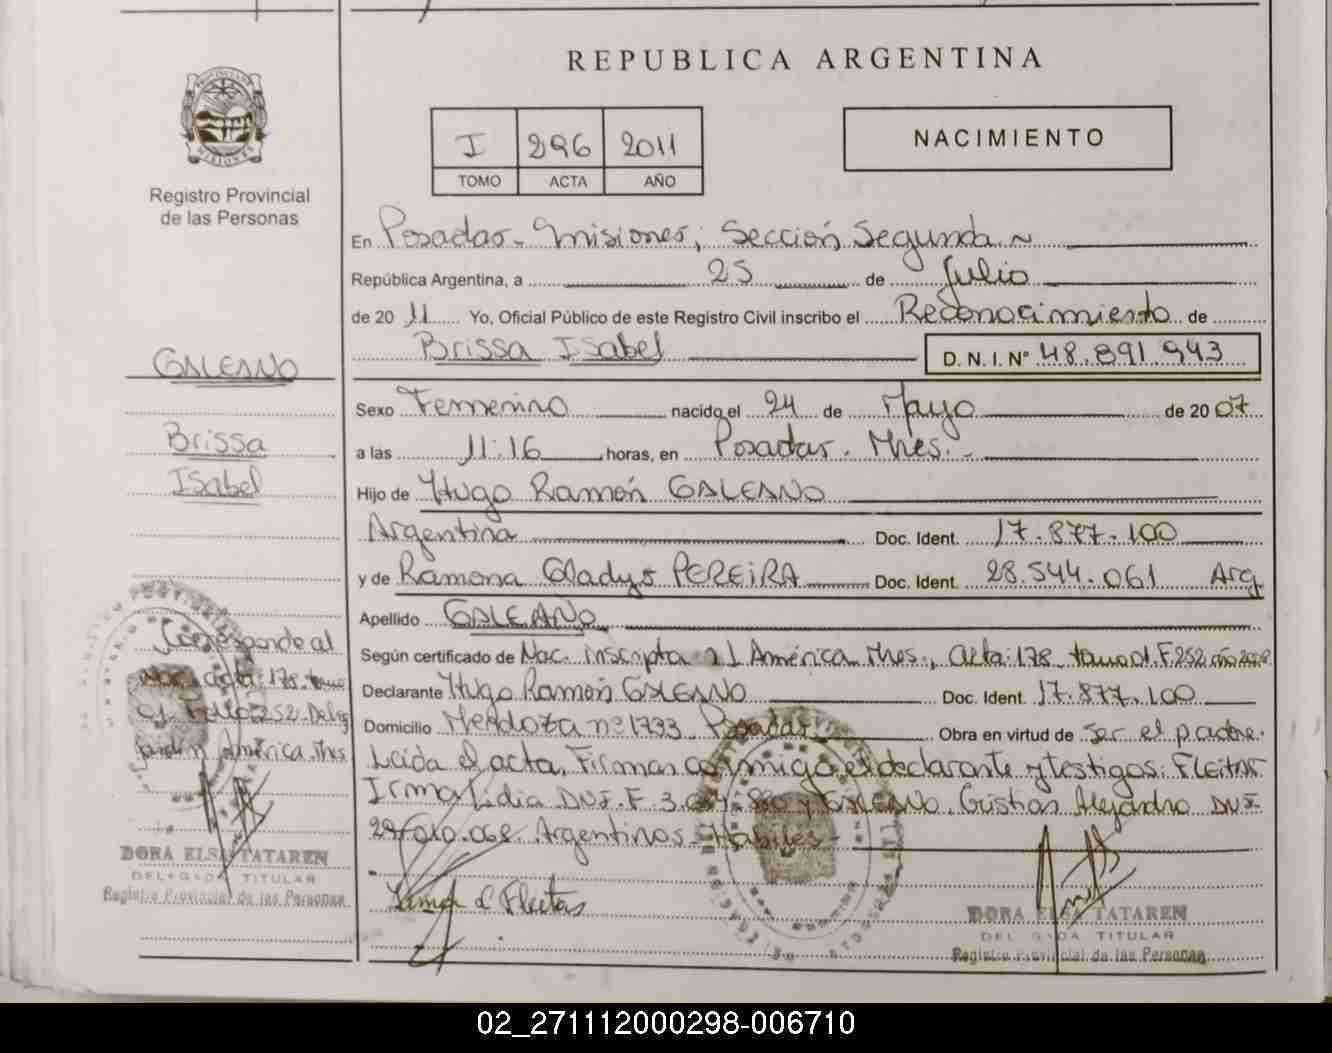 REPUBLICA ARGENTINA
Registro Provincial
de las Personas
I 296 2011
TOMO ACTA AÑO
NACIMIENTO
En Posadas - Misiones, Sección Segunda
República Argentina, a 25 de Julio
de 2011 Yo, Oficial Público de este Registro Civil inscribo el Reconocimiento de
Brissa Isabel D. N. I. Nº 48.891.943
Sexo Femenino nacido el 24 de Mayo de 2007
a las 11:16 horas, en Posadas. Mnes.-
Hijo de Hugo Ramón GALEANO
Argentina Doc. Ident. 17.877.100
y de Ramona Gladys PEREIRA Doc. Ident. 28.544.061 Arg
Apellido GALEANO
Según certificado de Nac. inscripta América. Mnes., acta: 178. tomo F.252
Declarante Hugo Ramón GALEANO Doc. Ident. 17.877.100
Domicilio Mendoza nº 1733 Posadas Obra en virtud de Ser el padre.
Leída el acta, Firman conmigo el declarante y testigos: FLEITAS
Irma Lidia DNI. F. 3. y GALEANO. Cristian Alejandro DNI.
29.010.068. Argentinos - Hábiles
Irma L Fleitas
GALEANO
Brissa
Isabel
Corresponde al
acta: 178. tomo
01. Folio 252. Deleg
Jardín América. Mnes
DORA ELSA TATAREN
DELEGADA TITULAR
Registro Provincial de las Personas
DORA ELSA TATAREN
DELEGADA TITULAR
Registro Provincial de las Personas
02_271112000298-006710